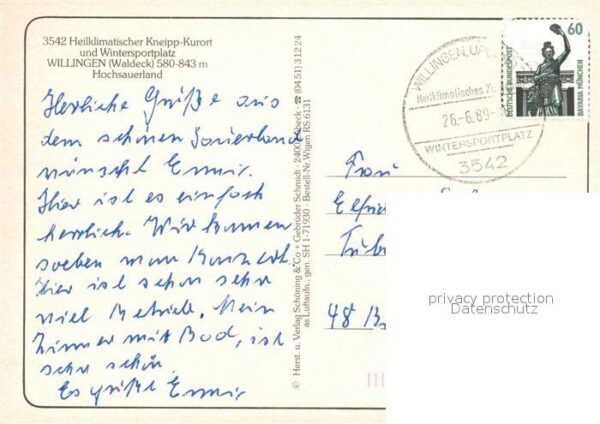 3542 Heilklimatischer Kneipp-Kurort
und Wintersportplatz
WILLINGEN (Waldeck) 580-843 m
Hochsauerland
Herzliche Grüße aus
dem schönen Sauerland
wünscht Emmi.
Hier ist es einfach
herrlich. Wir kommen
soeben vom Konzert.
Hier ist schon sehr
viel Betrieb. Mein
Zimmer mit Bad, ist
sehr schön.
Es grüßt Emmi
© Herst. u. Verlag Schöning & Co + Gebrüder Schmidt · 2400 Lübeck · ☎ (04 51) 3 12 24
as Luftaufn., gen. SH 1-71930 · Bestell-Nr. Wigen RS 6131
WILLINGEN, UPL
Heilklimatisches K
26.-6.89
WINTERSPORTPLATZ
3542
60
DEUTSCHE BUNDESPOST
BAVARIA MÜNCHEN
Frau
Elfrie
48 B
privacy protection
Datenschutz